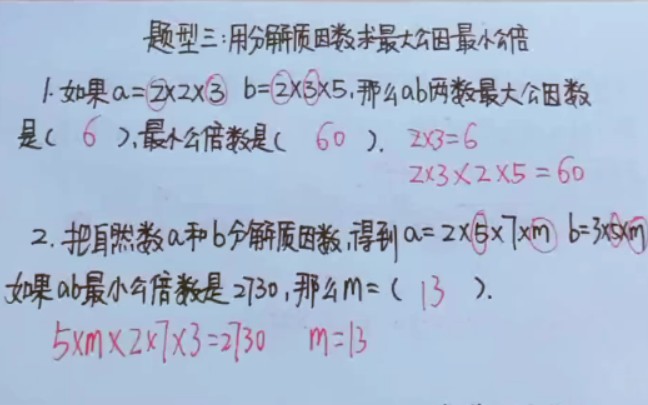 题型三:用分解质因数求最大公因最小公倍
1.如果a=2×2×3 b=2×3×5,那么ab两数最大公因数
是( 6 ),最小公倍数是( 60 ). 2×3=6
2×3×2×5=60
2.把自然数a和b分解质因数,得到a=2×5×7×m b=3×5×m
如果ab最小公倍数是2730,那么m=( 13 ).
5×m×2×7×3=2730 m=13